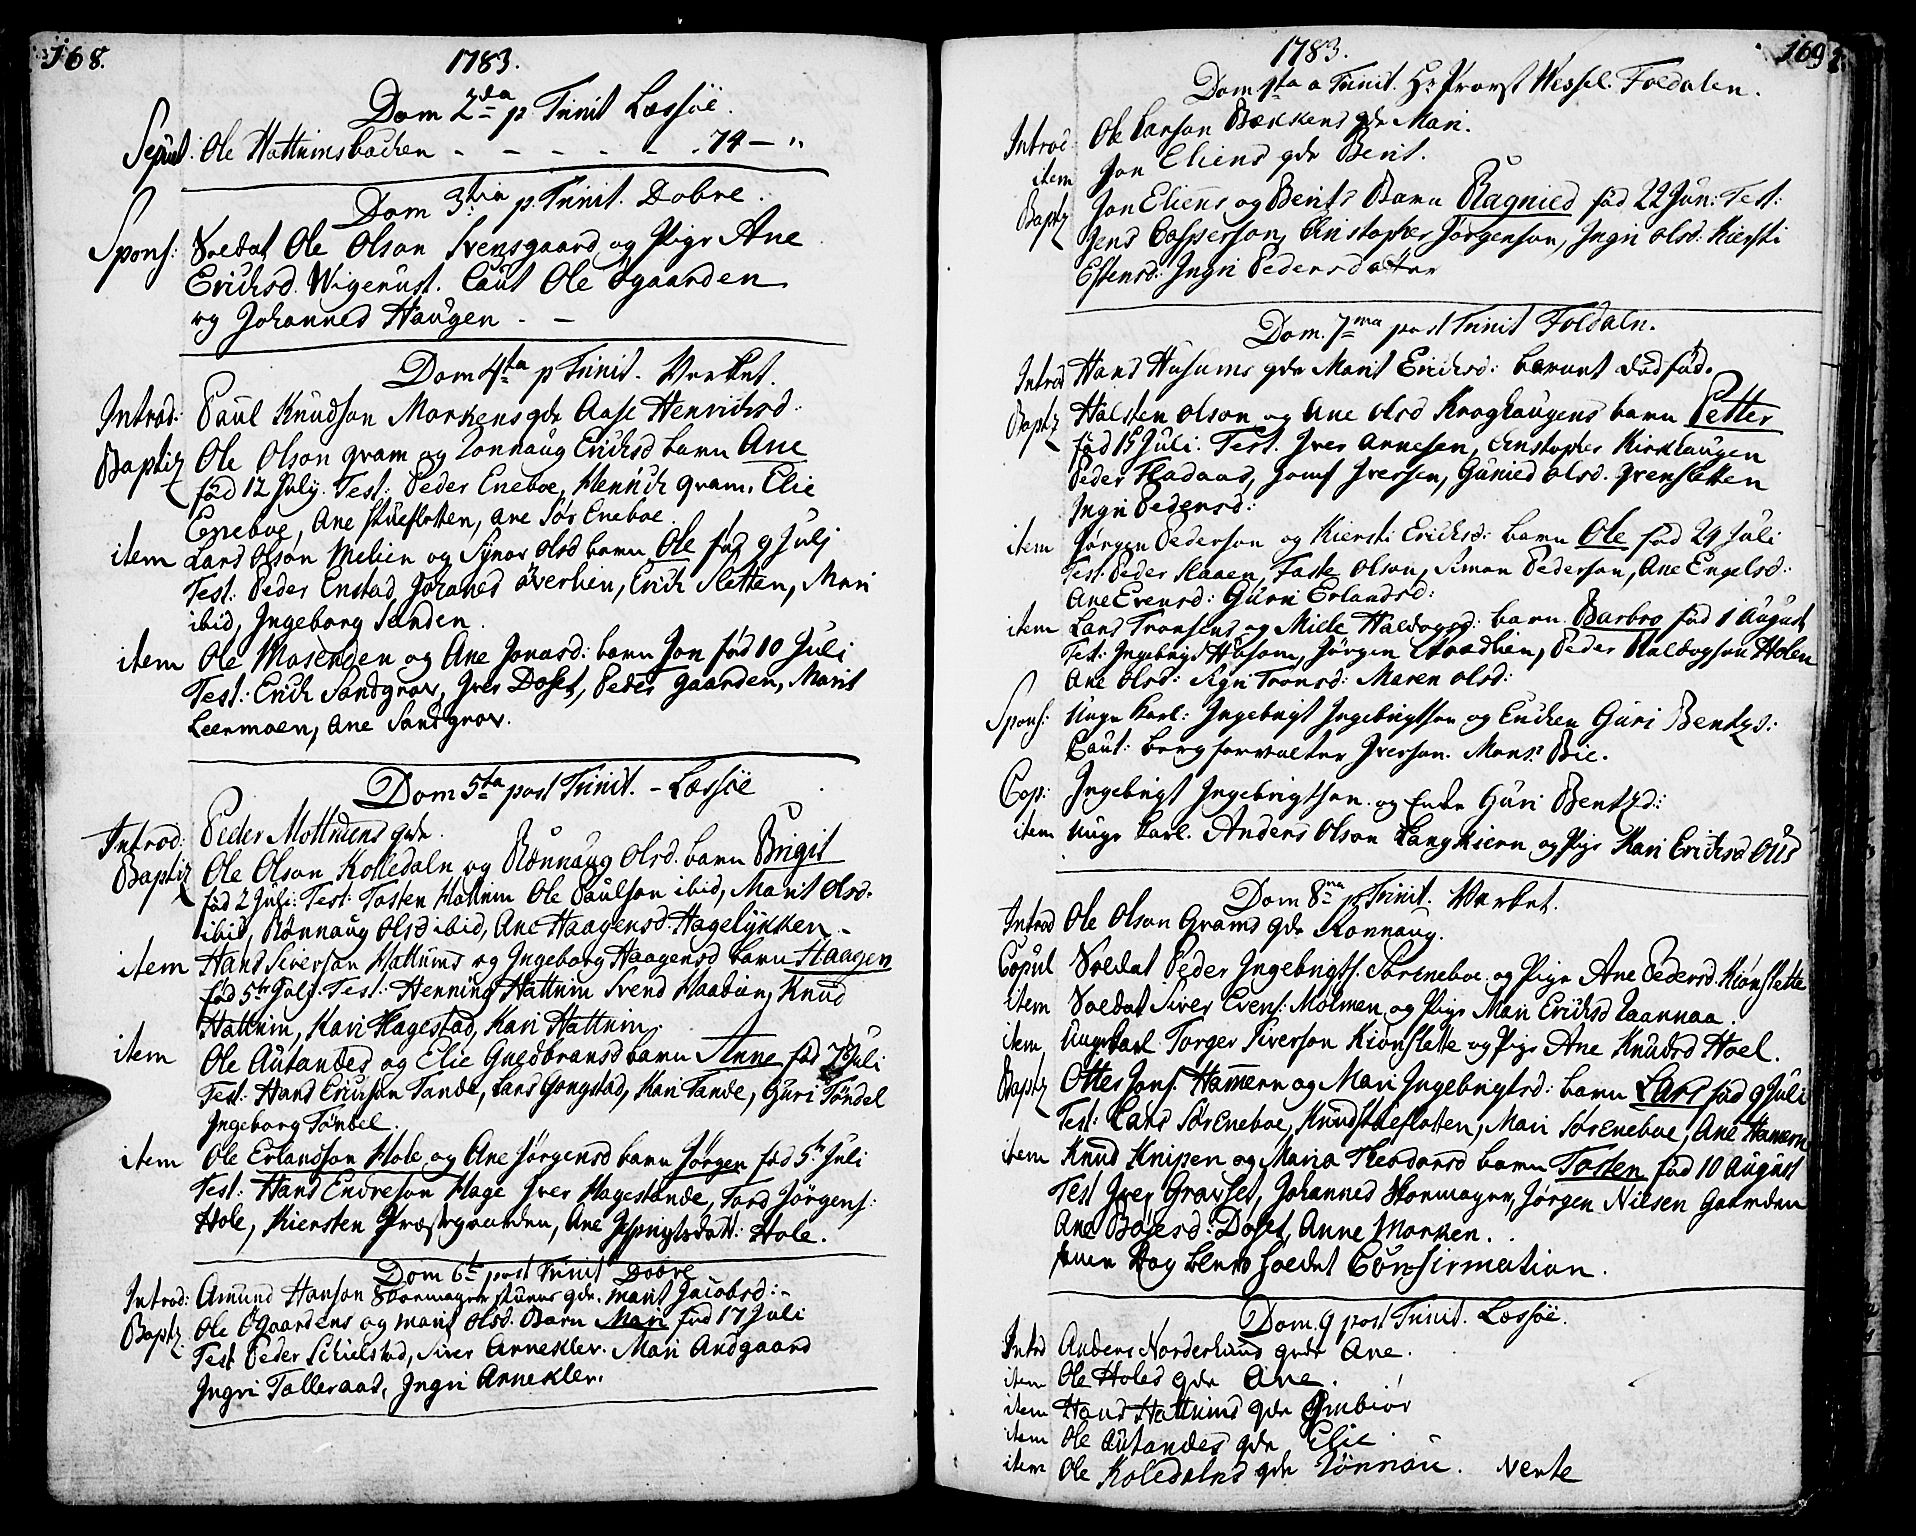 168.
1783.
Dom 2da p. Trinit Læssøe.
Sepult: Ole Hattumsbacken - - - - - . 74 - "
Dom 3tia p. Trinit. Dobre.
Spons: Soldat Ole Olson Svensgaard og Pige Ane
Erichsd. Wigerust. Caut Ole Øgaarden
og Johannes Haugen - -
Dom 4ta p Trinit. Verket.
Introd: Paul Knudson Morkens qde Aase Henrichsd:
Baptiz Ole Olson gram og Ronnaug Erichsd barn Ane
fød 12 July. Test: Peder Eneboe, Henrich gram, Elie
Eneboe, Ane Stuefloten, ane Sør Eneboe.
item Lars Olson Melien og Synov Olsd barn Ole fød 9 Julj
Test: Peder Enstad, Johanes øverlien, Erich Sletten, Mari
ibid, Ingeborg Sanden.
item Ole Mosenden og Ane Jonasd: barn Jon fød 10 Juli
Test: Erich Sandgrov, Iver Doset, Peder gaarden, Marit
Leermoen, Ane Sandgrov.
Dom 5ta post Trinit. - Læssøe
Introd: Peder Mottuens qde.
Baptiz Ole Olson Kolledaln og Rønnaug Olsd. barn Brigit
fød 2 Juli: Test: Tosten Hattum Ole Paulson ibid, Marit Olsd.
ibid, Rønnaug Olsd ibid, Ane Haagensd. Hagelykken.-
item Hans Siverson Hattums og Ingeborg Haagensd barn Haagen
fød 5te Julj. Test: Henning Hattum Svend Haabüen, Knud
Hattum, Kari Hagestad, Kari Hattum.
item Ole Autandes og Elie Guldbransd barn Anne fød 7 Juli
Test: Hans Erichson Tande, Lars Gongstad, Kari Tande, Guri Tøndel
Ingeborg Tøndel.
item Ole Erlandson Hole og Ane Jørgensd barn Jørgen fød 5te Juli
Test: Hans Endreson Hage Iver Hagestande, Tord Jørgens:
Hole, Kiersten Præstgaarden, Ane Ingrigtsdatt: Hole.
Dom 6te post Trinit Dobre
Introd: Amund Hanson Skormager stuens qde. Marit Jacobsd:-
Baptz Ole Øgaardens og Marit Olsd. Barn Mari fød 17 Juli
Test Peder Schielstad, Siver Arneklev. Mari Andgaard
Ingri Tolleraas, Ingri Arneklev.
169
1783.
Dom 1ta a Trinit. Hr Provst Wessel. Foldalen.
Introd Ole Larson Bækkens qde Mari.
item Jon Eliens qde Berit.
Baptz Jon Eliens og Berits Barn Ragnied fød 22 Jun: Test:
Jens Casperson, Christopher Jørgenson, Ingri Olsd: Kiersti
Estensd: Ingri Pedersdatter
Dom. 7ma post Trinit Foldaln.
Introd Hans Husums qde Marit Erichsd: barnet dødfød.
Baptz Halsten Olson og Ane Olsd Kroghaugens barn Petter
fød 15 Juli. Test. Iver Arnesen, Christopher Kirkhaugen
Peder Fladaas, Josef Iversen, Gunied Olsd. Grensletten
Ingri Pedersd:
item Jørgen Pederson og Kiersti Erichsd: barn Ole fød 24 Juli
Test: Peder Slaaen, Faste Olson, Simon Pederson, Ane Engelsd:
Ane Evensd: Guri Erlandsd:
item Lars Tronsens og Mille Haldogsd: barn Barbro fød 1 August
Test: Ingebrigt Husom, Jørgen Broadlien, Peder Haldogson Holen
Ane Olsd: Sigri Tronsd: Maren Olsd:
Spons: Unge Karl: Ingebrigt Ingebrigtson og Enchen Guri Bentzd:
Caut: berg forvalter Iverson. Mons. Bie.
Cop: Ingebrigt Ingebrigtson. og Enke Guri Bentzd:
item Unge Karl. Anders Olson Langkiern og Pige Kari Erichsd Ous
Dom 8na p Trinit. Verket.
Introd Ole Olson Grams qde Ronnaug.
Copul Soldat Peder Ingebrigts. Søreneboe og Pige Ane Pedersd. Kiønslette
item Soldat Siver Evens: Molmen og Pige Mari Erichsd Laannaa.
item Ungekarl Torger Siverson Kiønslette og Pige Ane Knudsd Hoel.
Baptz Otter Jons. Hammern og Mari Ingebrigtsd: barn Lars fød 9 Juli
Test: Lars Søreneboe, Knud Stuefloten, Mari Søreneboe, Ane Hamern
item Knud Knipen og Maria Theodorsd barn Tosten fød 10 August
Test Iver Gravset, Johannes Skormager, Jørgen Nielsen Gaarden
Ane Boiesd: Doset, Anne Morken.
samme Dag blev holdet Confirmation.
Dom. 9 post Trinit. Læssøe.
Introd Anders Norderhuus qde Ane.
item Ole Holes qde Ane.
item Hans Hattums qde Gunbiør
item Ole Autandes qde Elie.
item Ole Koledalns qde Rønnau. Verte